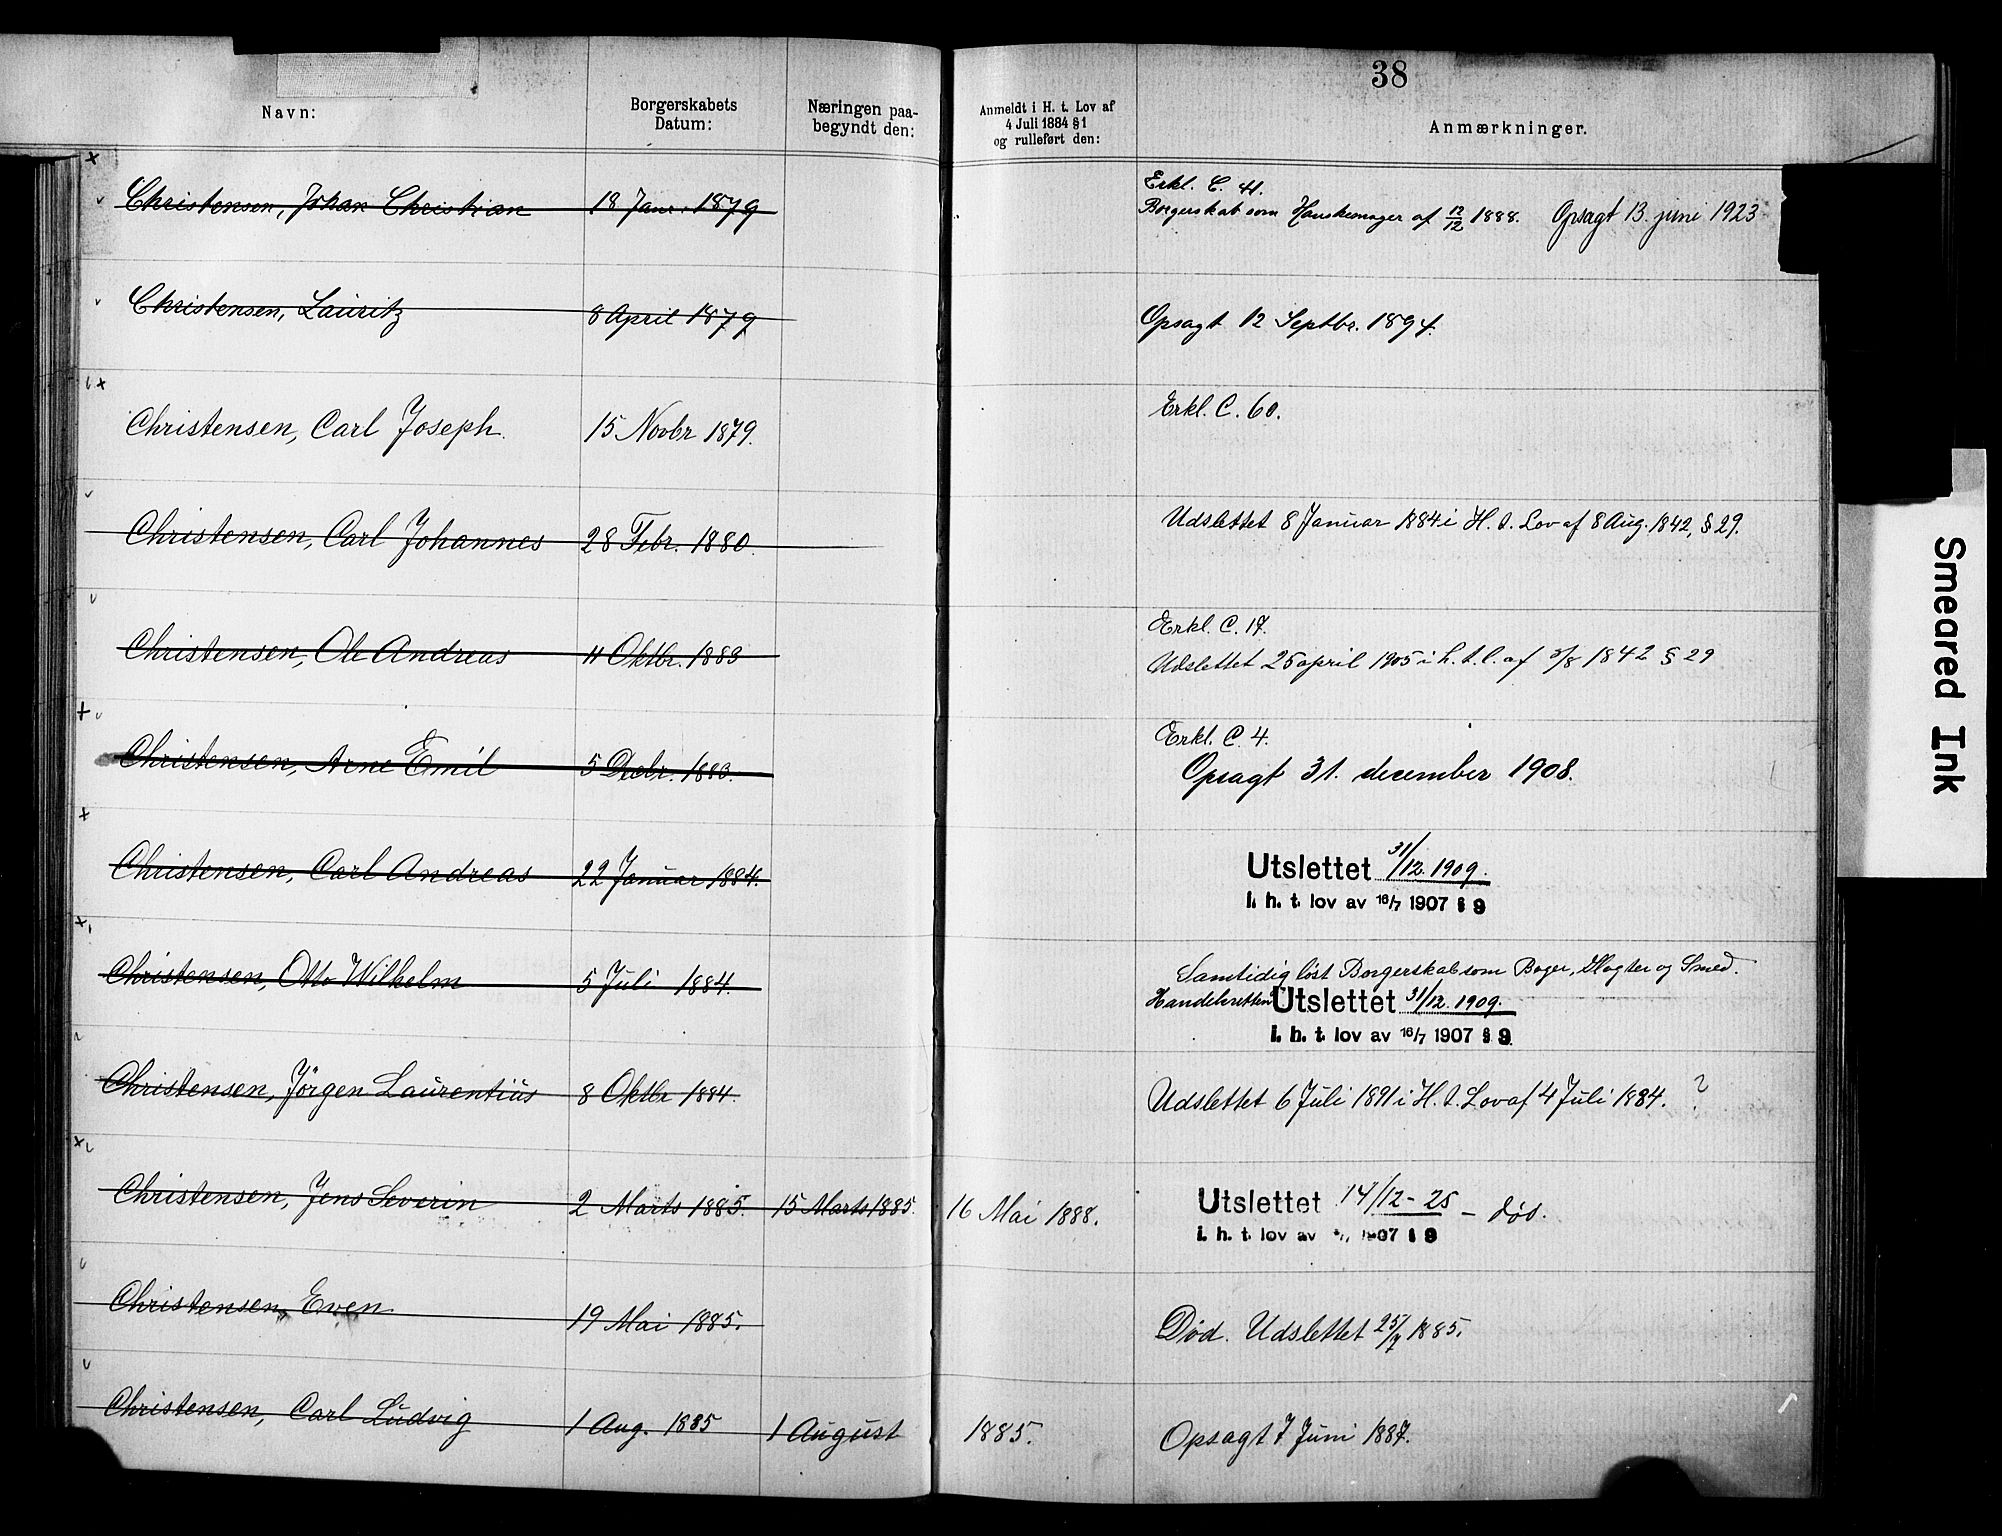 38
Navn:
Borgerskabets
Datum:
Næringen paa-
begyndt den:
Anmeldt i H. t. Lov af
4 Juli 1884 § 1
og rulleført den:
Anmærkninger.
Erkl. C. 41.
Christensen, Johan Christian 18 Janr. 1879 Borgerskab som Handskemager af 12/12 1888. Opsagt 13. juni 1923
Christensen, Lauritz 8 April 1879 Opsagt 12 Septbr. 1894.
Erkl. C. 60.
Christensen, Carl Joseph. 15 Novbr 1879.
Christensen, Carl Johannes 28 Febr. 1880. Udslettet 8 Januar 1884 i H. t. Lov af 8 Aug. 1842, § 29.
Erkl. C. 17.
Christensen, Ole Andreas 11 Oktbr. 1883 Udslettet 25 april 1905 i h. t. l. af 8/8 1842 § 29
Erkl. C. 4.
Christensen, Arne Emil 5 Decbr. 1883. Opsagt 31. december 1908.
Christensen, Carl Andreas 22 Januar 1884. Utslettet 31/12. 1909.
i. h. t. lov av 16/7 1907 § 9
Samtidig løst Borgerskab som Bager, Slagter og Smed.
Christensen, Otto Wilhelm 5 Juli 1884. Handelsretten Utslettet 31/12. 1909.
i. h. t. lov av 16/7 1907 § 9.
Christensen, Jörgen Laurentius 8 Oktbr 1884. Udslettet 6 Juli 1891 i H. t. Lov af 4 Juli 1884. ?
Christensen, Jens Severin 2 Marts 1885. 15 Marts 1885. 16 Mai 1888. Utslettet 14/12 - 25 - død.
i. h. t. lov av 1907 § 9
Christensen, Even 19 Mai 1885. Død. Udslettet 25/7 1885.
Christensen, Carl Ludvig 1 Aug. 1885 1 August 1885. Opsagt 7 Juni 1887.
Smeared Ink